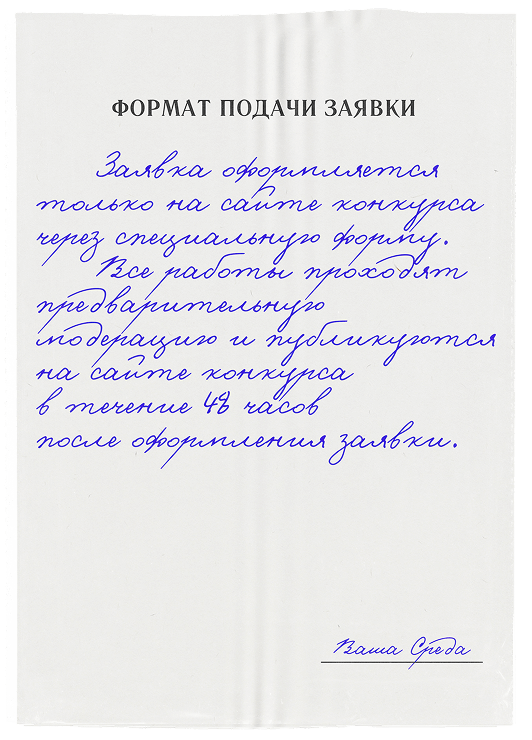 ФОРМАТ ПОДАЧИ ЗАЯВКИ
Заявка оформляется
только на сайте конкурса
через специальную форму.
Все работы проходят
предварительную
модерацию и публикуются
на сайте конкурса
в течение 48 часов
после оформления заявки.
Ваша Среда